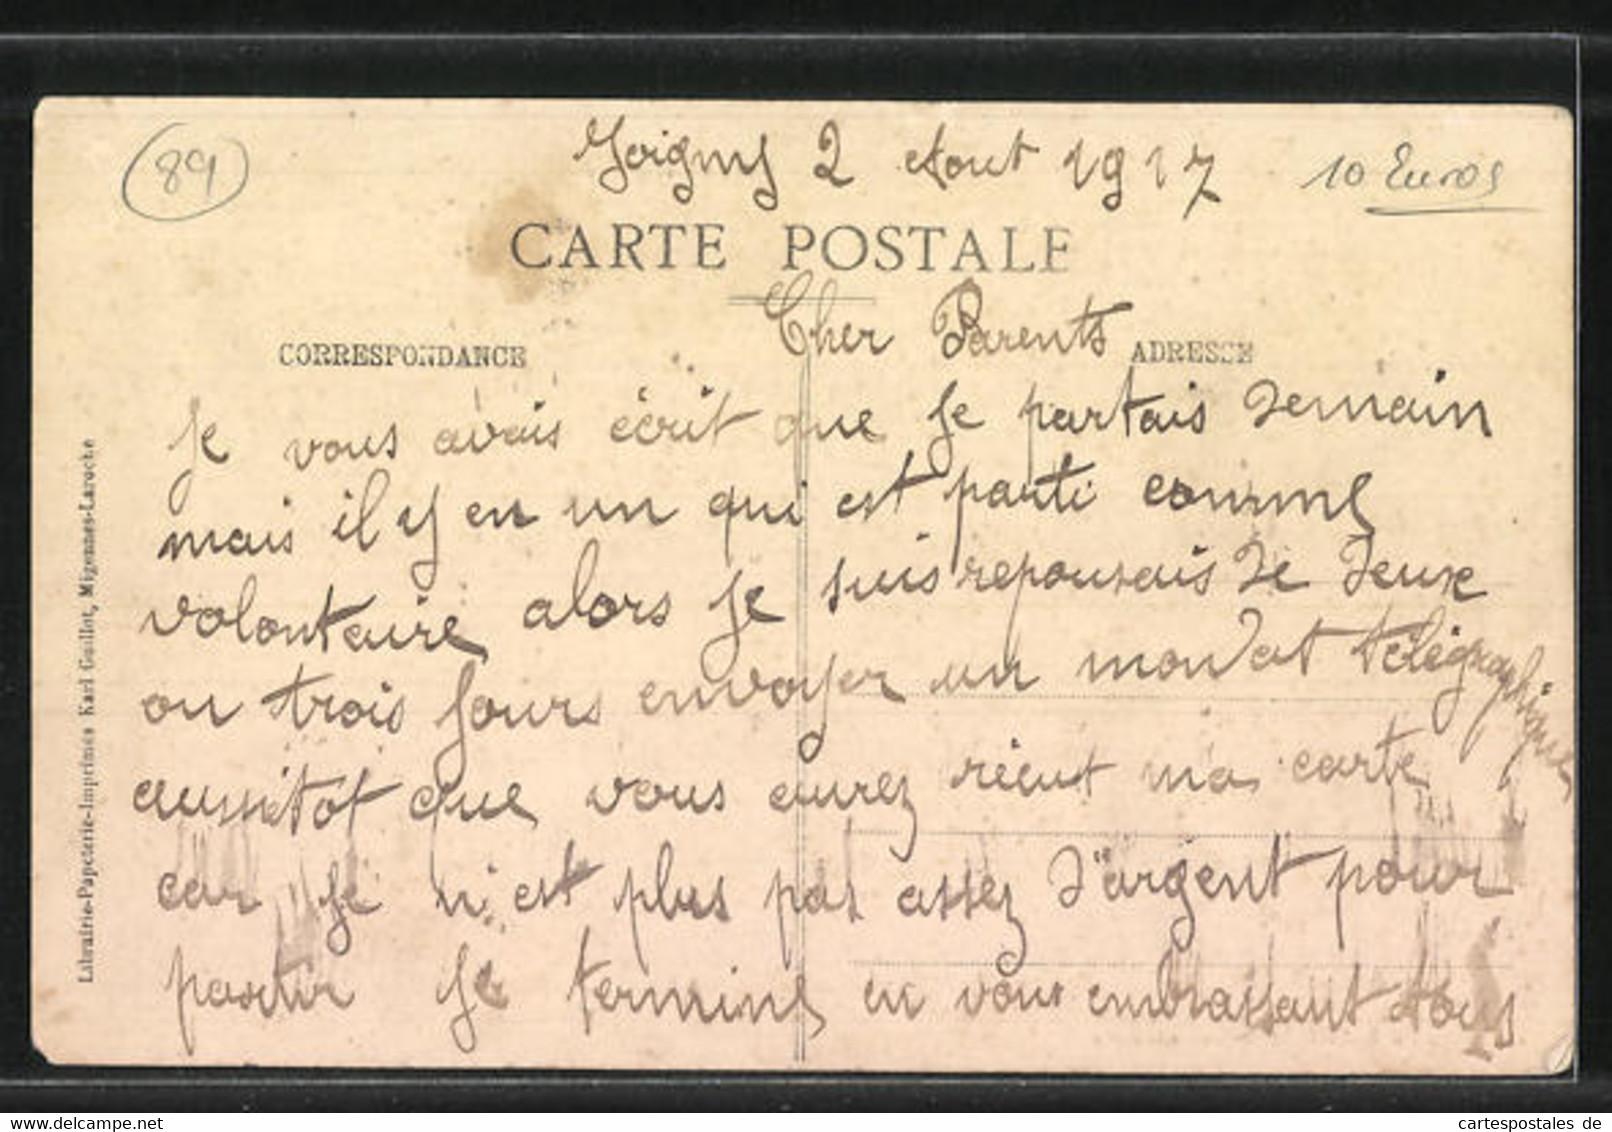 89
Joigny 2 Aout 1917
10 Euros
CARTE POSTALE
Cher Parents
CORRESPONDANCE
ADRESSE
Je vous avais écrit que je partais demain
mais il y en un qui est parti comme
volontaire alors je suis repousais de deux
ou trois jours envoyer un mondat télégraphique
aussitot que vous aurez réçut ma carte
car je n'est plus pas assez d'argent pour
partir je termine en vous embrassant tous
Librairie-Papeterie-Imprimés Karl Guillot, Migennes-Laroche
www.delcampe.net
cartespostales de